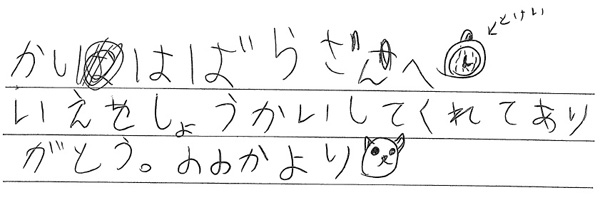 とけい
かいはばらさんへ
いえせしょうかいしてくれてあり
がとう。ののかより